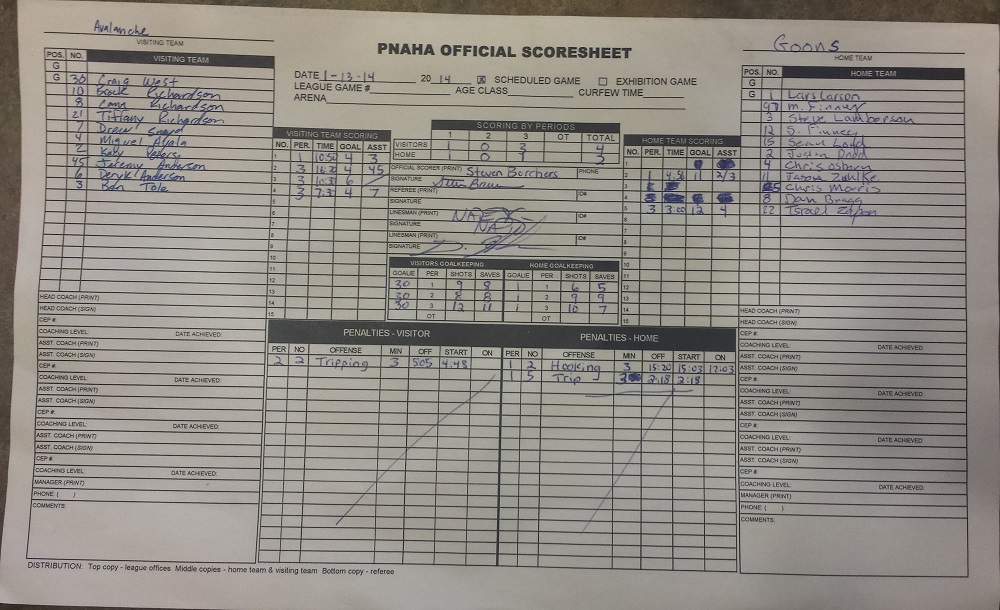 Avalanche
VISITING TEAM
PNAHA OFFICIAL SCORESHEET
Goons
HOME TEAM
DATE 1-13-14 20 14 ☒ SCHEDULED GAME ☐ EXHIBITION GAME
LEAGUE GAME # AGE CLASS CURFEW TIME
ARENA
POS. NO. VISITING TEAM
G
G 30 Craig West
10 Brock Richardson
8 Richardson
21 Tiffany Richardson
7 Drew
4 Miguel Ayala
2 Katy
45 Jeremy Anderson
6 Deryk Anderson
3 Ben Tole
HEAD COACH (PRINT)
HEAD COACH (SIGN)
CEP #
COACHING LEVEL: DATE ACHIEVED:
ASST. COACH (PRINT)
ASST. COACH (SIGN)
CEP #
COACHING LEVEL: DATE ACHIEVED:
ASST. COACH (PRINT)
ASST. COACH (SIGN)
CEP #:
COACHING LEVEL: DATE ACHIEVED:
ASST. COACH (PRINT)
ASST. COACH (SIGN)
CEP #:
COACHING LEVEL: DATE ACHIEVED:
MANAGER (PRINT)
PHONE ( )
COMMENTS:
VISITING TEAM SCORING
NO. PER. TIME GOAL ASST
1 1 10:50 4 3
2 3 4 45
3 3 6
4 3 7:37 4 7
5
6
7
8
9
10
11
12
13
14
15
SCORING BY PERIODS
1 2 3 OT TOTAL
VISITORS 1 0 3 4
HOME 1 0 1 2
OFFICIAL SCORER (PRINT) Steven Borchers PHONE
SIGNATURE
REFEREE (PRINT) ID#
SIGNATURE
LINESMAN (PRINT) ID#
SIGNATURE
LINESMAN (PRINT) ID#
SIGNATURE
VISITORS GOALKEEPING HOME GOALKEEPING
GOALIE PER SHOTS SAVES GOALIE PER SHOTS SAVES
30 1 9 8 1 1 6 5
30 2 8 8 1 2 9 9
30 3 12 11 1 3 10 7
OT OT
HOME TEAM SCORING
NO. PER. TIME GOAL ASST
1
2 1 4:56 11 2/3
3
4
5 3 3:00 12 4
6
7
8
9
10
11
12
13
14
15
PENALTIES - VISITOR
PER NO OFFENSE MIN OFF START ON
2 2 Tripping 3 505 4:48
PENALTIES - HOME
PER NO OFFENSE MIN OFF START ON
1 2 Hooking 3 15:20 15:03 12:03
1 5 Trip 3 2:18 2:18
POS. NO. HOME TEAM
G
G 1 Lars Larson
97 M. Finney
3 Steve Lamberson
12 S. Finney
15 Sean Ladd
2 Justin
4 Chris Osborn
11 Jason Zahlke
Chris Morris
8 Dan Bragg
22 Israel
HEAD COACH (PRINT)
HEAD COACH (SIGN)
CEP #:
COACHING LEVEL: DATE ACHIEVED:
ASST. COACH (PRINT)
ASST. COACH (SIGN)
CEP #
COACHING LEVEL DATE ACHIEVED:
ASST. COACH (PRINT)
ASST. COACH (SIGN)
CEP #:
COACHING LEVEL DATE ACHIEVED:
ASST. COACH (PRINT)
ASST. COACH (SIGN)
CEP #:
COACHING LEVEL: DATE ACHIEVED:
MANAGER (PRINT)
PHONE ( )
COMMENTS:
DISTRIBUTION: Top copy - league offices Middle copies - home team & visiting team Bottom copy - referee